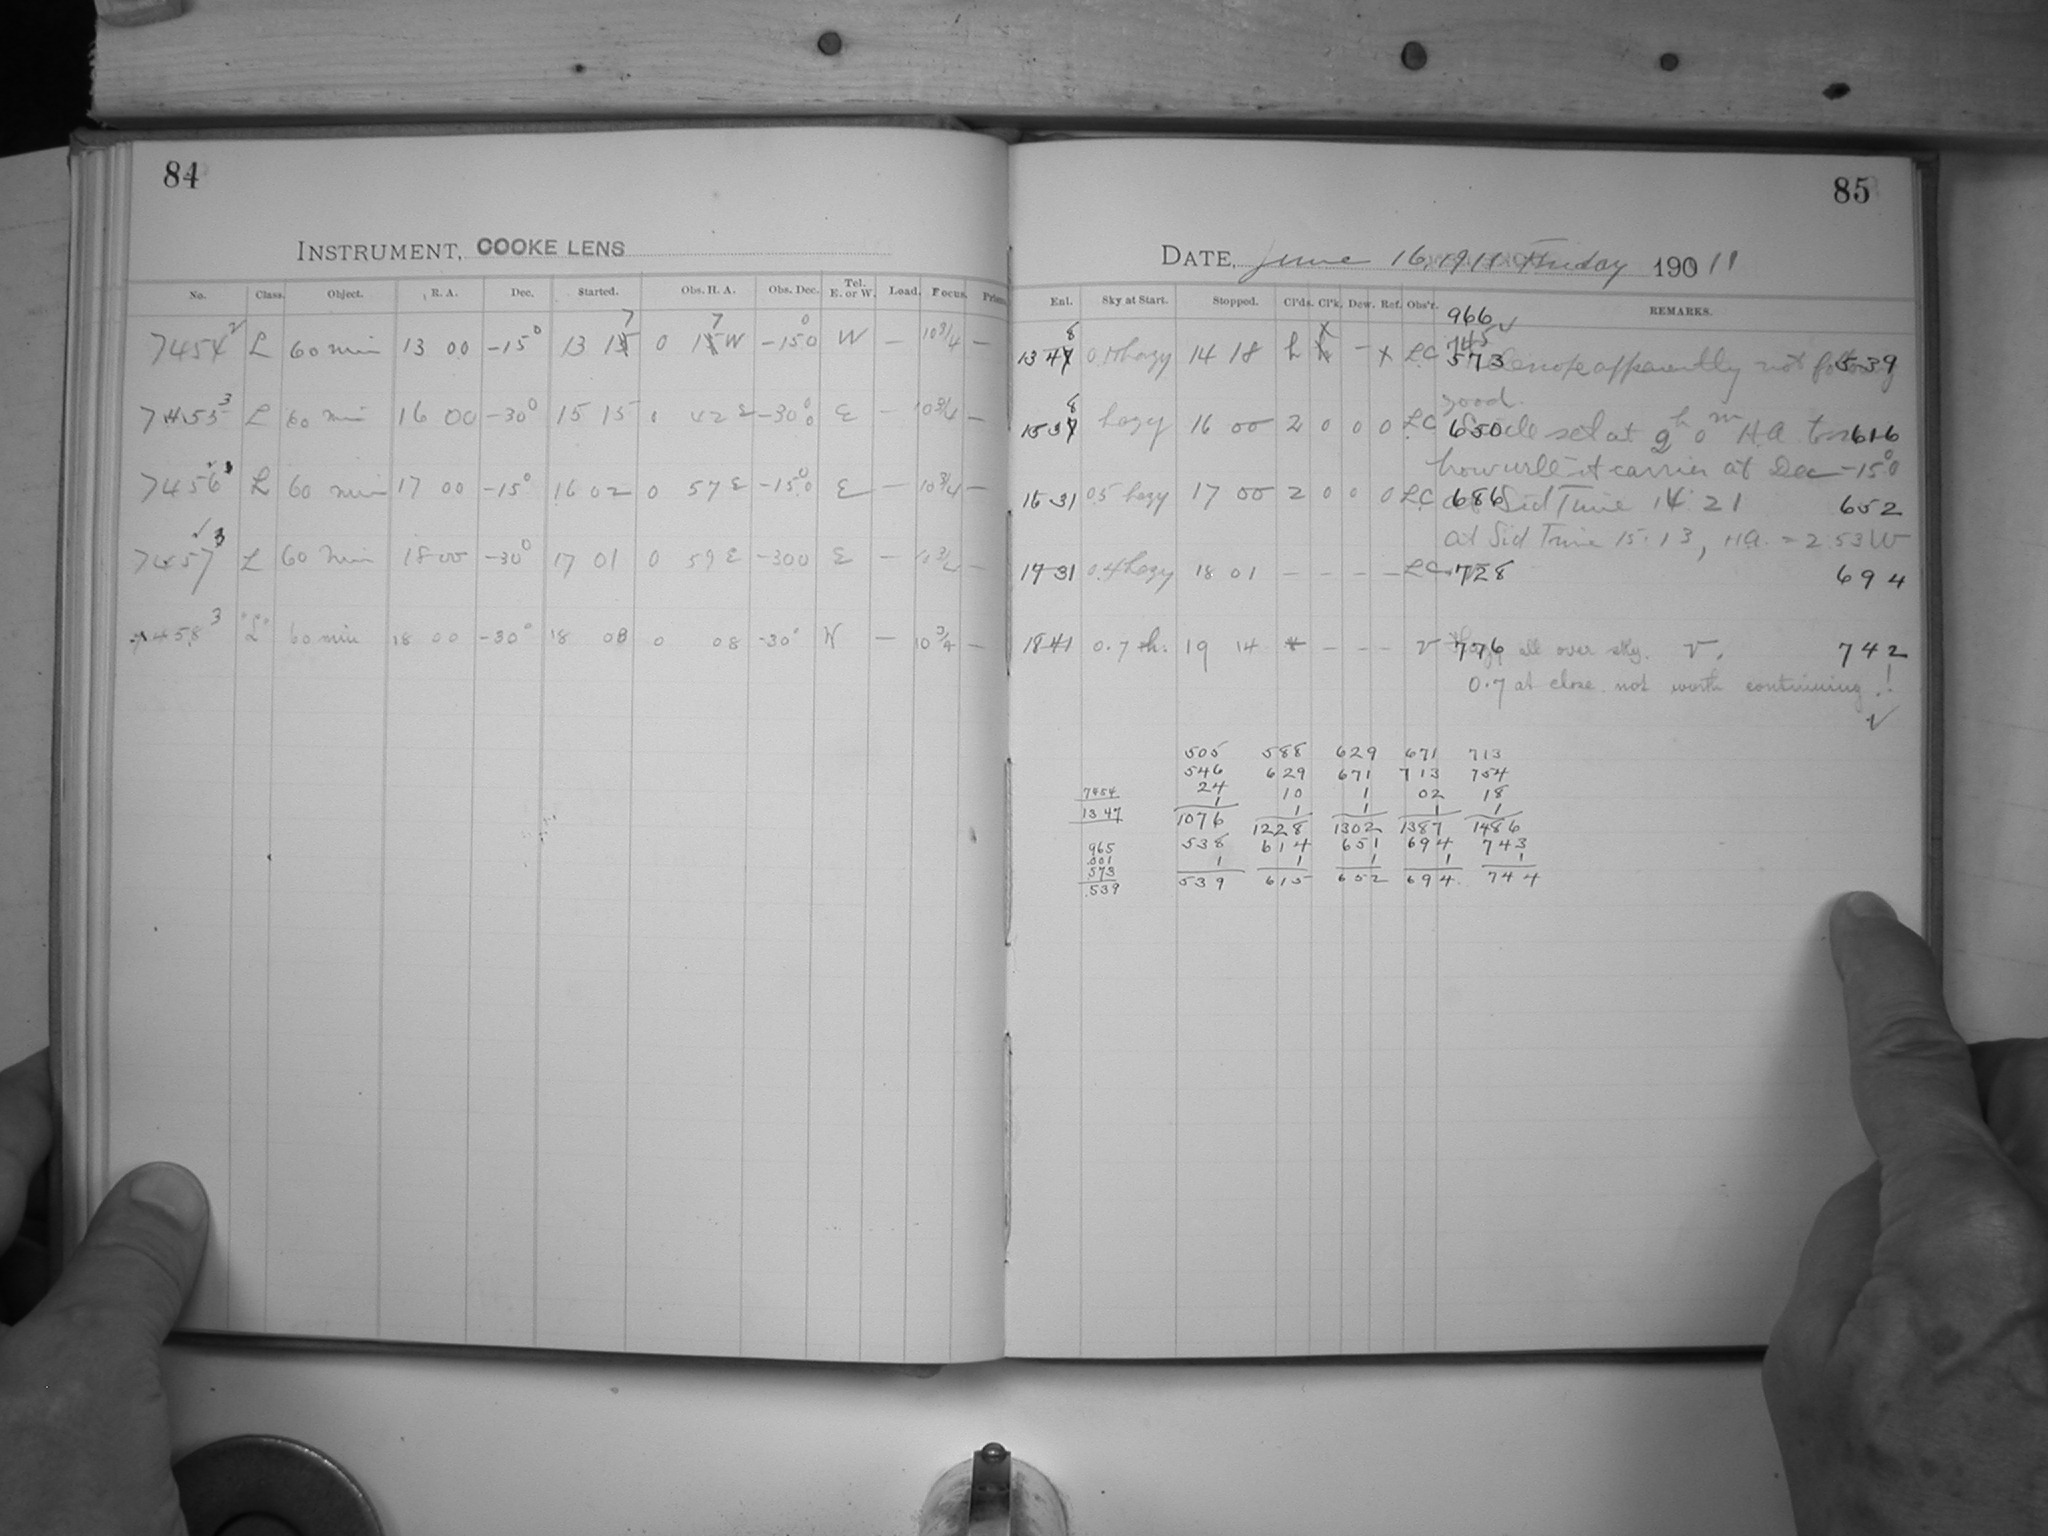 84
INSTRUMENT, COOKE LENS
No. Class. Object. R. A. Dec. Started. Obs. H. A. Obs. Dec. Tel. E. or W. Load. Focus.
7454 2 L 60 min 13 00 -15° 13 17 0 17 W -15° 0 W — 10 3/4 —
7455 3 L 60 min 16 00 -30° 15 15 0 42 E -30° 0 E — 10 3/4 —
7456 3 L 60 min 17 00 -15° 16 02 0 57 E -15° 0 E — 10 3/4 —
7457 3 L 60 min 18 00 -30° 17 01 0 59 E -30 0 E — 10 3/4 —
7458 3 "L" 60 min 18 00 -30° 18 08 0 08 -30° W — 10 3/4 —
85
DATE, June 16, 1911 Friday 190 11
Enl. Sky at Start. Stopped. Cl'ds. Cl'k. Dew. Ref. Obs'r. REMARKS.
966
745
13 48 hazy 14 18 h — x LC 573 apparently not following 539
good.
15 38 hazy 16 00 2 0 0 0 LC 650 set at 2h 0m H.A. to 616
how well it carries at Dec -15° 0
16 31 0.5 hazy 17 00 2 0 0 0 LC 686 at Sid Time 14. 21 652
at Sid Time 15. 13, HA. = 2 53 W
17 31 0.4 hazy 18 01 — — — — LC 728 694
18 41 0.7 th. 19 14 — — — v 776 all over sky. v. 742
0.7 at close. not worth continuing.!
505 588 629 671 713
546 629 671 713 754
7454 24 10 1 02 18
1 1 1 1 1
13 47 1076 1228 1302 1387 1486
965 538 614 651 694 743
.001 1 1 1 1 1
.573 539 615 652 694. 744
.539